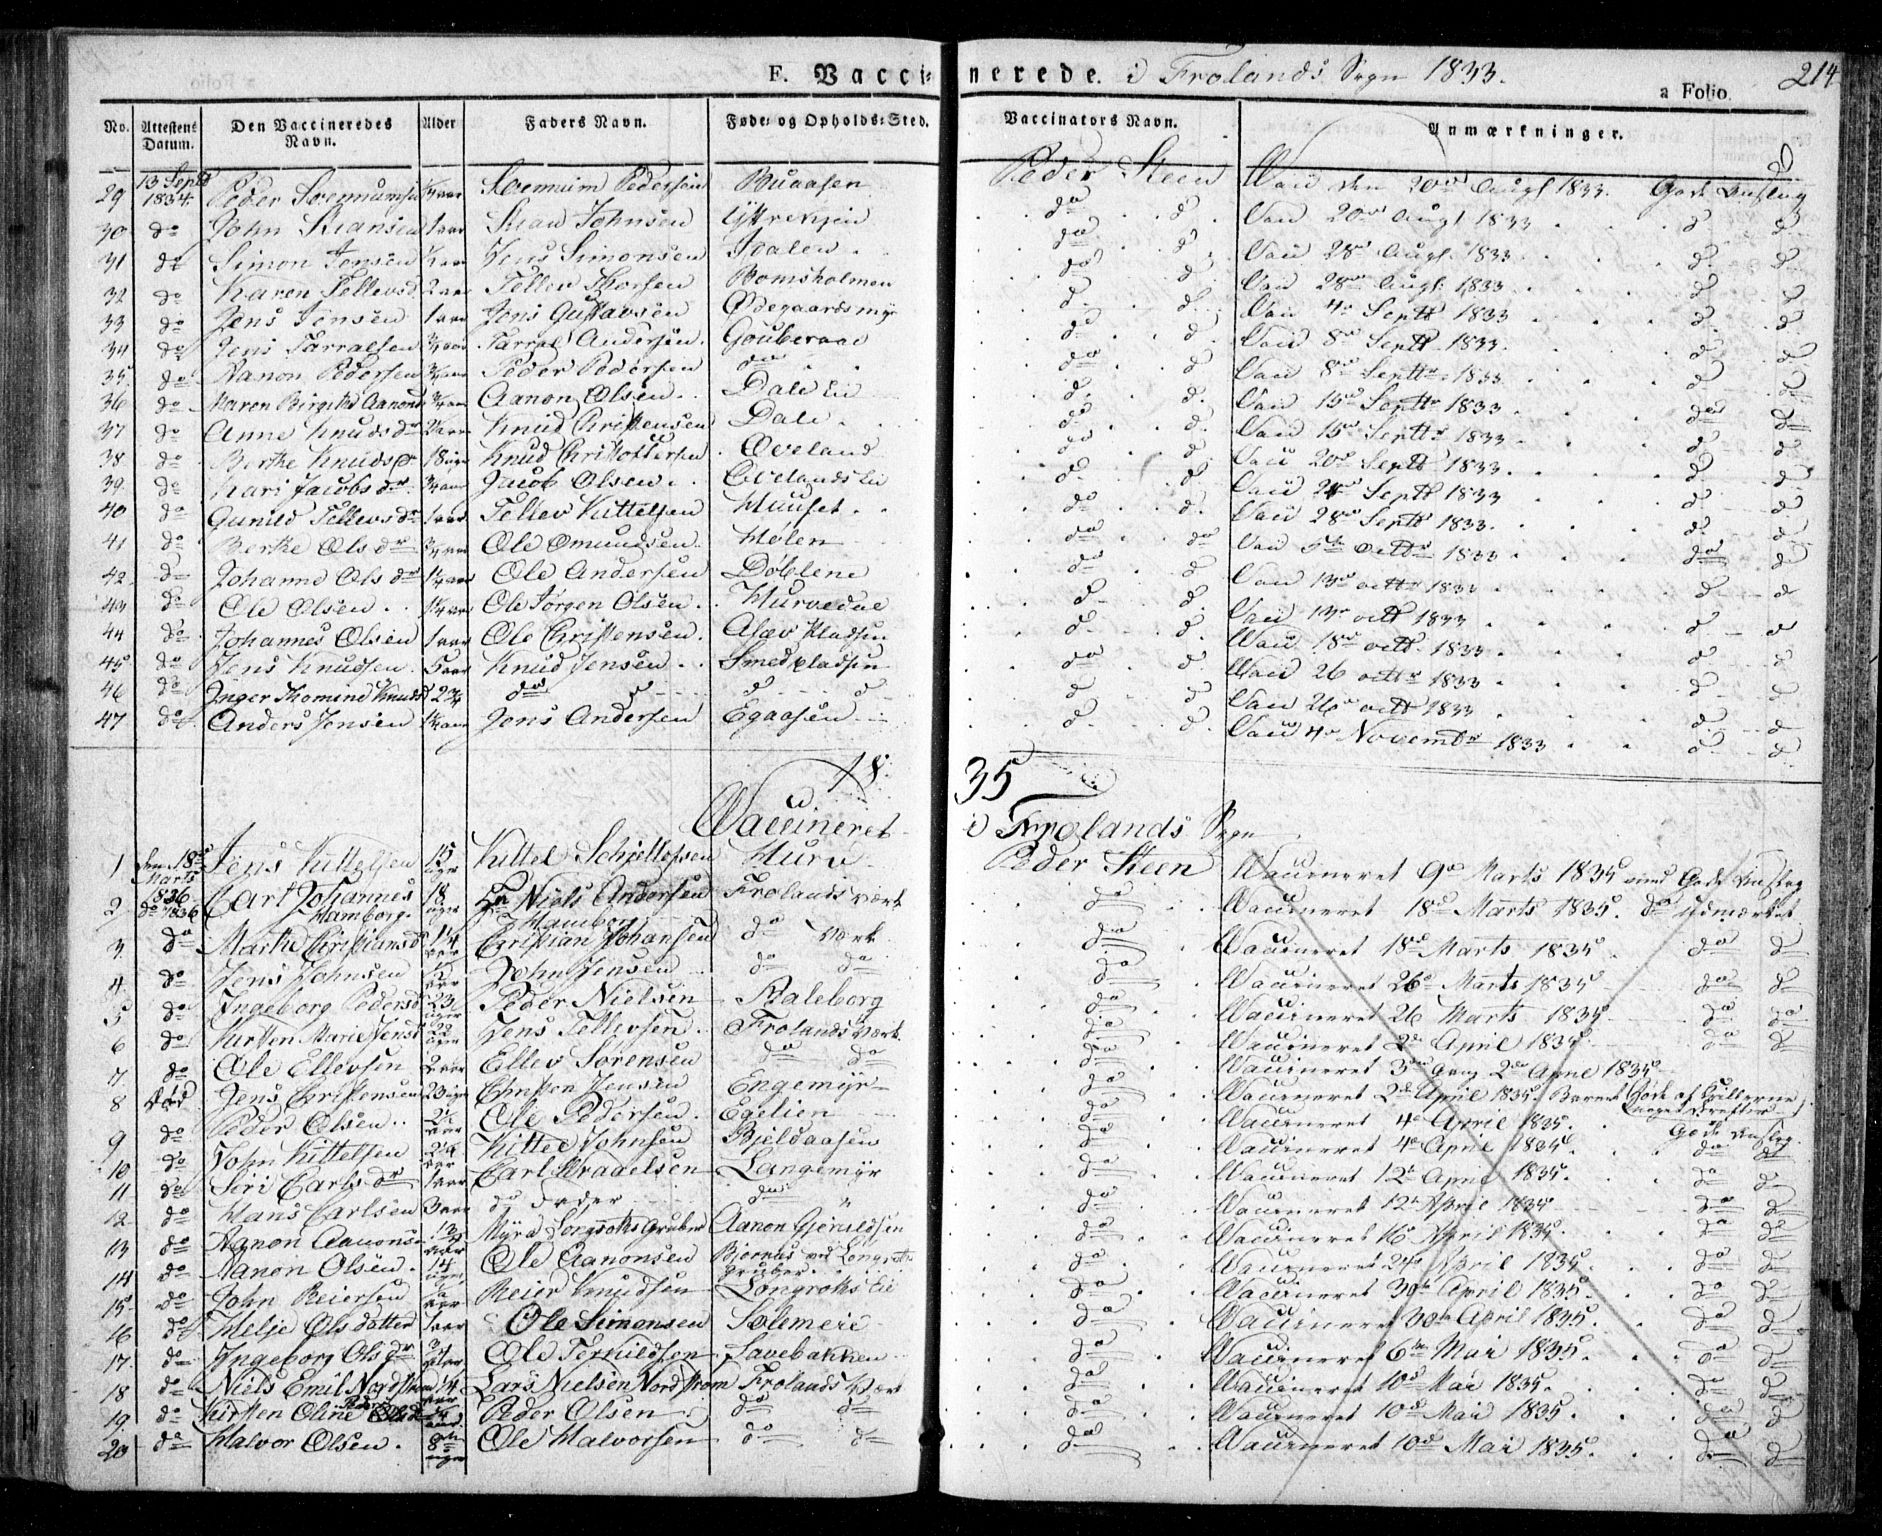 F. Vaccinerede. i Frolands Sogn 1833.
a Folio. 214
No. Attestens Datum. Den Vaccineredes Navn. Alder Faders Navn. Føde- og Opholds-Sted. Vaccinators Navn. Anmærkninger.
29 13 Sept 1834 Peder Aar Pedersen Buaasen Peder Steen Vacc den 20de Augt 1833. Gode
30 do John 1 aar Johnsen do d Vacc 20de Augt 1833 d d
31 do Simon Jensen Jens Simonsen do d Vacc 28de Augt 1833 d d
32 do Karen Tellevsd 2 aar Tellev Thorsen Bomsholmen do d Vacc 28de Augt 1833 d d
33 do Jens Jensen 1 aar Jens Gustavsen Ødegaardsmyr d d Vacc 4de Septb 1833 d d
34 do Jens Tarralsen 3/4 aar Tarral Andersen Gouberaae d d Vacc 8de Septb 1833 d d
35 do Aanon Pedersen 3/4 aar Peder Pedersen do do d Vacc 8de Septbr 1833 d d
36 do Maren Birgithe Aanonsd 3/4 aar Aanon Olsen Dale Lie d d Vacc 15de Septbr 1833 do do
37 do Anne Knudsdr Knud Christensen Dale d d Vacc 15de Septbr 1833 d d
38 do Berthe Knudsdr 18 uger Knud Christoffersen Øveland do d Vacc 20de Septb 1833 d d
39 do Kari Jacobsdr 3/4 aar Jacob Olsen Øvelands Lie d d Vacc 24de Septb 1833 d d
40 do Gunild Tellevsdr 1 aar Tellev Kittelsen do d Vacc 28de Septb 1833 d d
41 do Berthe Olsdr 3/4 aar Ole Omundsen Mølen do do Vacc 5te Octbr 1833 do d
42 do Johanne Olsdr 1 1/4 aar Ole Andersen Døblene do d Vacc 13de octbr 1833 d d
43 do Ole Olsen 1 1/4 aar Ole Jørgen Olsen Hurvedal d d Vacc 13de octb 1833 d d
44 do Johannes Olsen 1 aar Ole Christensen Pladsen d d Vacc 18de octb 1833 d d
45 do Jens Knudsen 5 aar Knud Jensen Smedpladsen do d Vacc 26 octbr 1833 d d
46 do Inger Thomine Knudsd 2 3/4 do d d d d d Vacc 26de octb 1833 d d
47 do Anders Jensen Jens Andersen Egaasen d d Vacc 4de Novembr 1833 d d
1835
Vaccineret i Frolands Sogn
1 den 18de Marts 1836 Jens Kittelsen 15 uger Kittel Schjellefsen Hurv Peder Steen Vaccineret 9de Marts 1835 med Gode
2 do 1836 Carl Johannes Hamborg 18 uger Niels Andersen Hamborg Frolands Værk do Vaccineret 18de Marts 1835 do Udmærket
3 do Marthe Christiansd 1 1/4 aar Christian Johansen do Værk do Vaccineret 18de Marts 1835 do d
4 do Jens Johnsen aar John Jensen do do do Vaccineret 26de Marts 1835 do d
5 do Ingeborg Pedersd 23 uger Peder Nielsen Staleborg do Vaccineret 26 Marts 1835 do do
6 do Kirsten Marie Jensd 22 uger Jens Tellevsen Frolands Værk do Vaccineret 2de April 1835 do d
7 do Ole Ellevsen 2 aar Ellev Sørensen do do do Vaccineret 3die Gang 2de April 1835
8 død Jens Christensen 23 uger Christen Jensen Engemyr do Vaccineret 2de April 1835 Barnet
9 do Peder Olsen aar Ole Pedersen Egelien do Vaccineret 4de April 1835 Gode
10 do John Kittelsen aar Kittel Johnsen Bjeldaasen do Vaccineret 4de April 1835 do do
11 do Siri Carlsdr 1 aar Carl Langemyr do Vaccineret 12te April 1835 do d
12 do Hans Carlsen 3 aar do Fader do do Vaccineret 12te April 1835 do d
13 do Aanon Aanonsen aar Myra Longrothsgruber Aanon Gjeruldsen do Vaccineret 16de April 1835 do do
14 do Aanon Olsen 14 uger Ole Aanonsen Bjørnaas ved Longroths gruber do Vaccineret 24de April 1835 do do
15 do John Reiersen aar Reier Knudsen Longroths Lie do Vaccineret 30te April 1835 do do
16 do Helje Olsdatter 1 aar Ole Simonsen Solemeie do Vaccineret 30te April 1835 do d
17 do Ingeborg Olsdr aar Ole Terkildsen Lavebakken do Vaccineret 6te Mai 1835 do do
18 do Niels Emil Nordstrøm 1/4 aar Lars Nielsen Nordstrøm Frolands Værk do Vaccineret 10de Mai 1835 do d
19 do Kirsten Oline Pedersd aar Peder Olsen do do do Vaccineret 10de Mai 1835 do d
20 do Halvor Olsen 8 uger Ole Halvorsen do do do Vaccineret 10de Mai 1835 do d